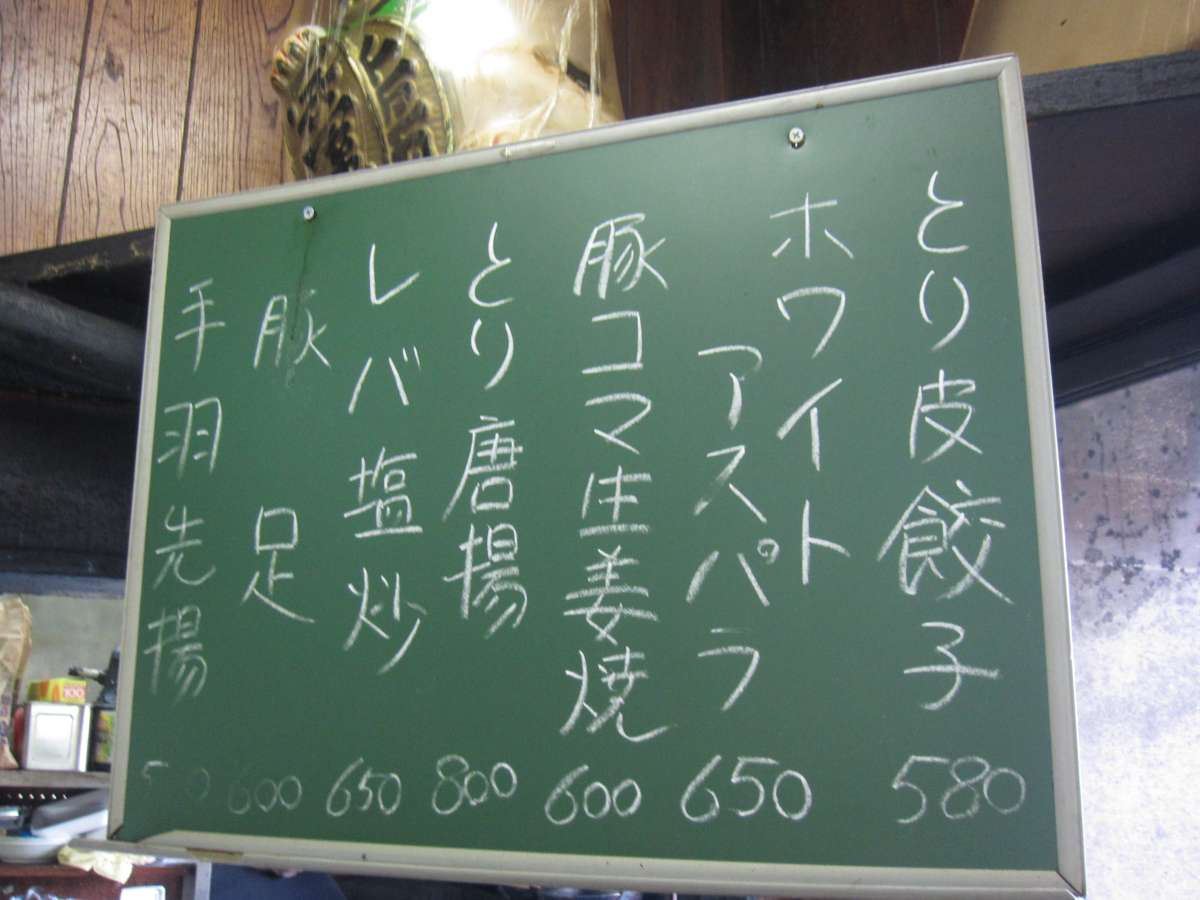 とり皮餃子 580
ホワイト
アスパラ 650
豚コマ生姜焼 600
とり唐揚 800
レバ塩炒 650
豚足 600
手羽先揚
100